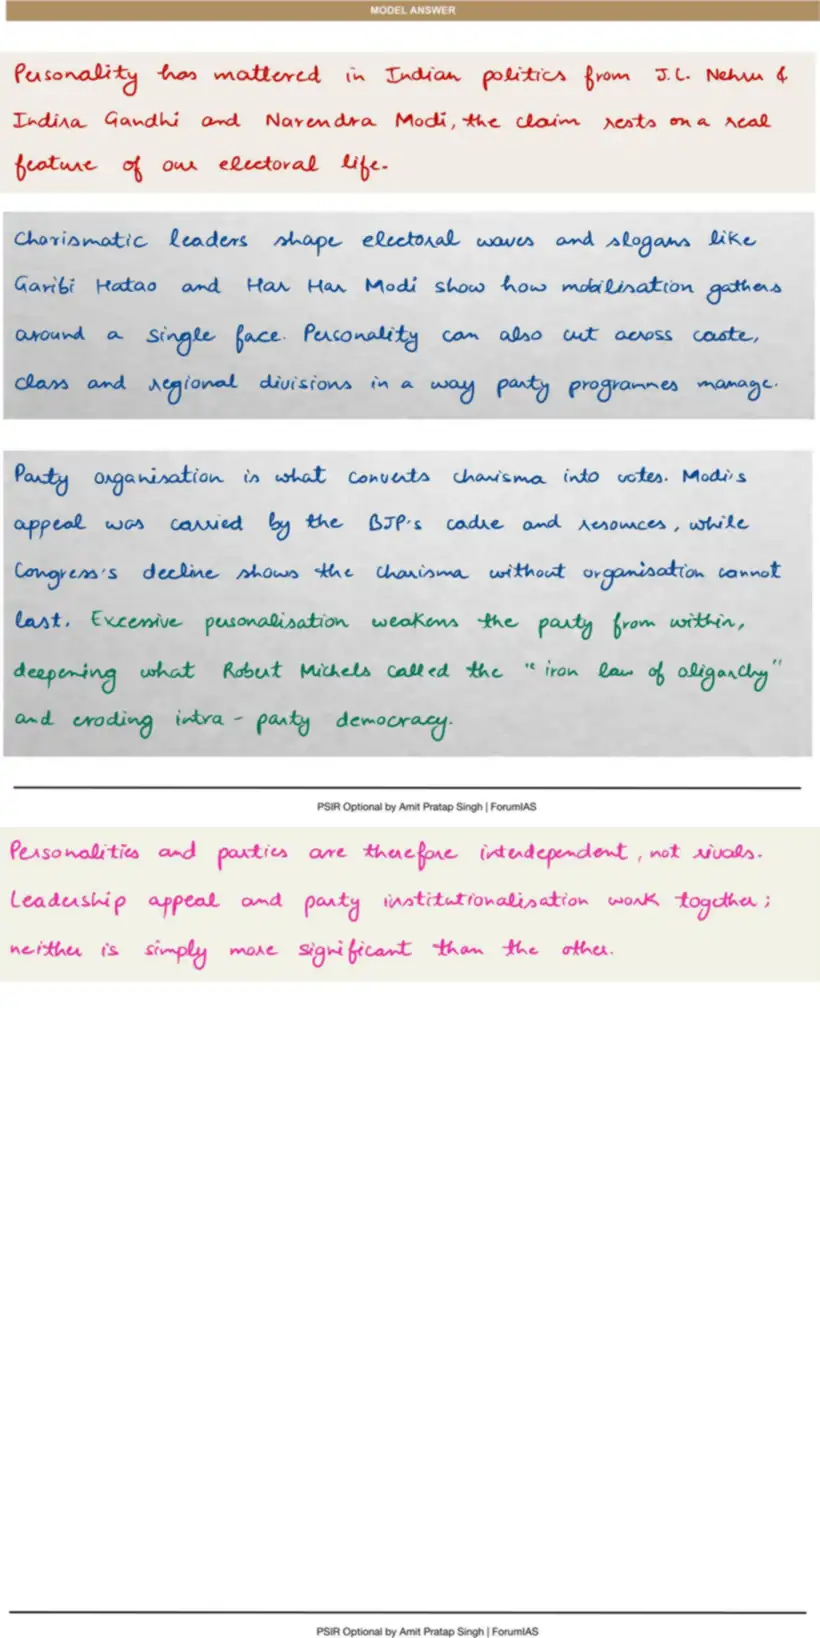 MODEL ANSWER
Personality has mattered in Indian politics from J.L. Nehru &
Indira Gandhi and Narendra Modi, the claim rests on a real
feature of our electoral life.
Charismatic leaders shape electoral waves and slogans like
Garibi Hatao and Har Har Modi show how mobilisation gathers
around a single face. Personality can also cut across caste,
class and regional divisions in a way party programmes manage.
Party organisation is what converts charisma into votes. Modi's
appeal was carried by the BJP's cadre and resources, while
Congress's decline shows the charisma without organisation cannot
last. Excessive personalisation weakens the party from within,
deepening what Robert Michels called the "iron law of oligarchy"
and eroding intra-party democracy.
PSIR Optional by Amit Pratap Singh | ForumIAS
Personalities and parties are therefore interdependent, not rivals.
Leadership appeal and party institutionalisation work together;
neither is simply more significant than the other.
PSIR Optional by Amit Pratap Singh | ForumIAS